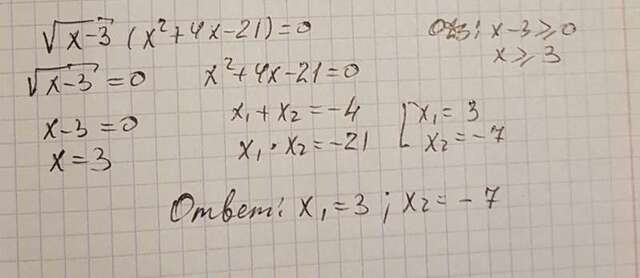 √x-3 (x²+4x-21)=0
ОДЗ: x-3⩾0
x⩾3
√x-3=0
x²+4x-21=0
x-3=0
x=3
x₁+x₂=-4
x₁·x₂=-21
[x₁=3
x₂=-7
Ответ: x₁=3; x₂=-7